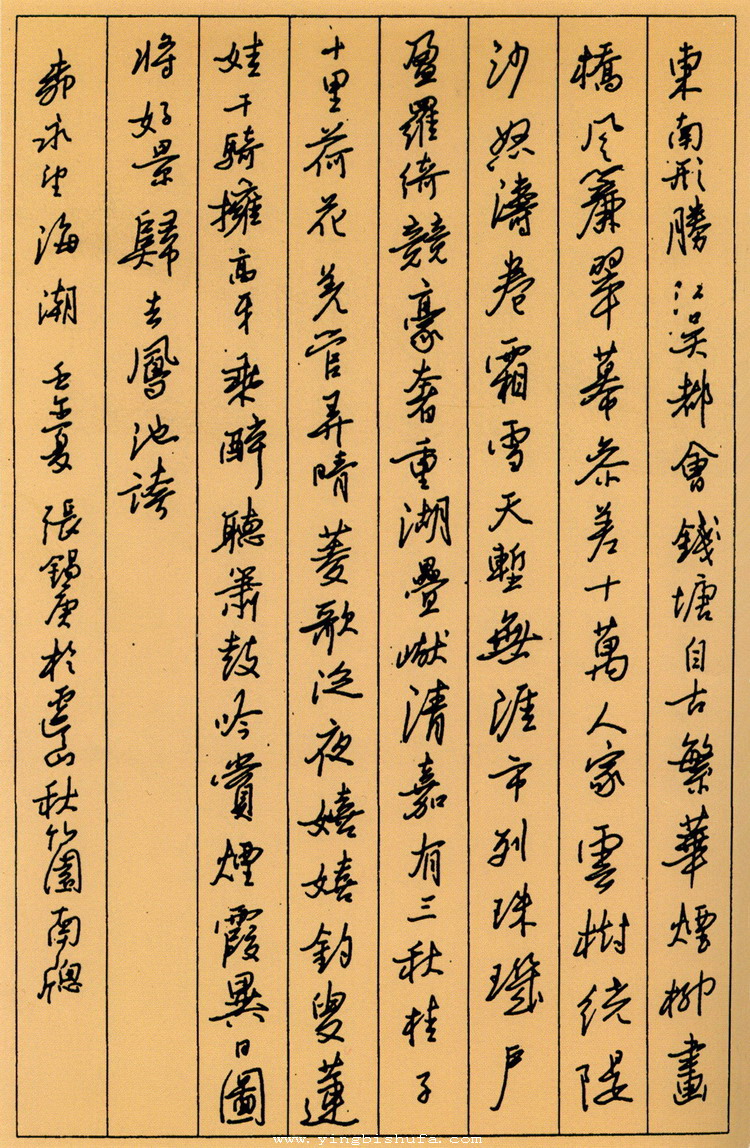 東南形勝江吳都會錢塘自古繁華煙柳畫
橋風簾翠幕參差十萬人家雲樹繞隄
沙怒濤卷霜雪天塹無涯市列珠璣戶
盈羅綺競豪奢重湖疊巘清嘉有三秋桂子
十里荷花羌管弄晴菱歌泛夜嬉嬉釣叟蓮
娃千騎擁高牙乘醉聽簫鼓吟賞煙霞異日圖
將好景歸去鳳池誇
柳永望海潮 壬夏 張錫庚於山秋竹園南牕
www.yingbishufa.com